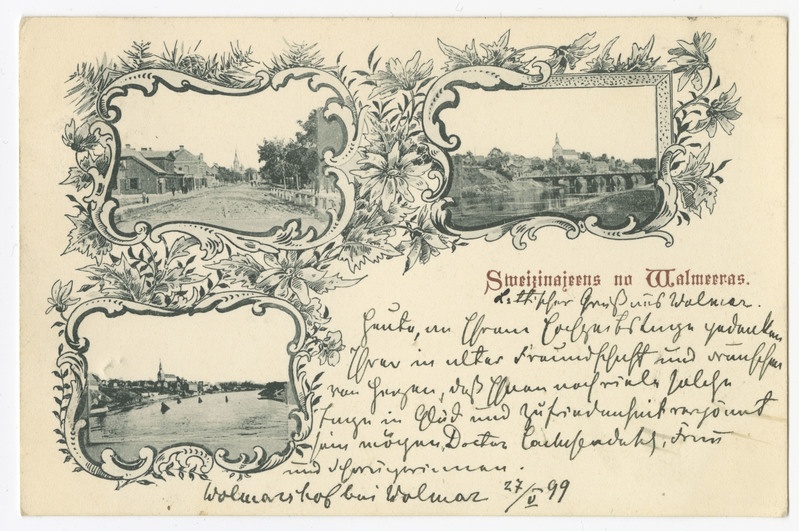 Sweizinajeens no Walmeeras.
Lettischer Gruß aus Wolmar.
Heute, an Ihrem Hochzeitstage gedenken
Ihrer in alter Freundschaft und wünschen
von Herzen, daß Ihnen noch viele solche
Tage in Glück und Zufriedenheit vergönnt
sein mögen, Doctor Frau
und Schwägerinnen.
Wolmarshof bei Wolmar 27/V 99